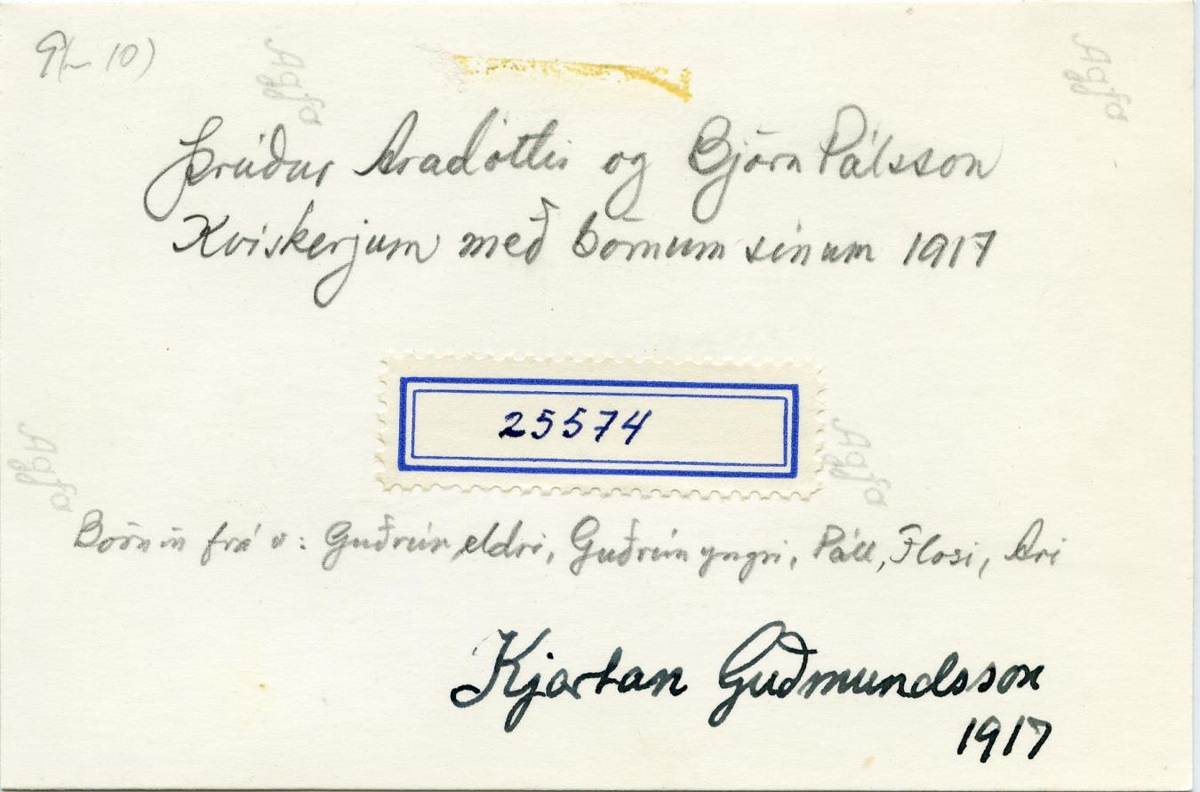 9(- 10)
Agfa Agfa
Þrúður Aradóttir og Björn Pálsson
Kvískerjum með börnum sínum 1917
25574
Agfa Agfa
Börnin frá v: Guðrún eldri, Guðrún yngri, Páll, Flosi, Ari
Kjartan Guðmundsson
1917